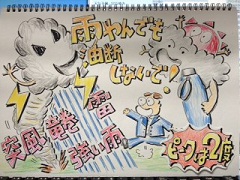 雨やんでも
油断
しないで！
雷
突風 竜巻
強い雨
ピークは2度